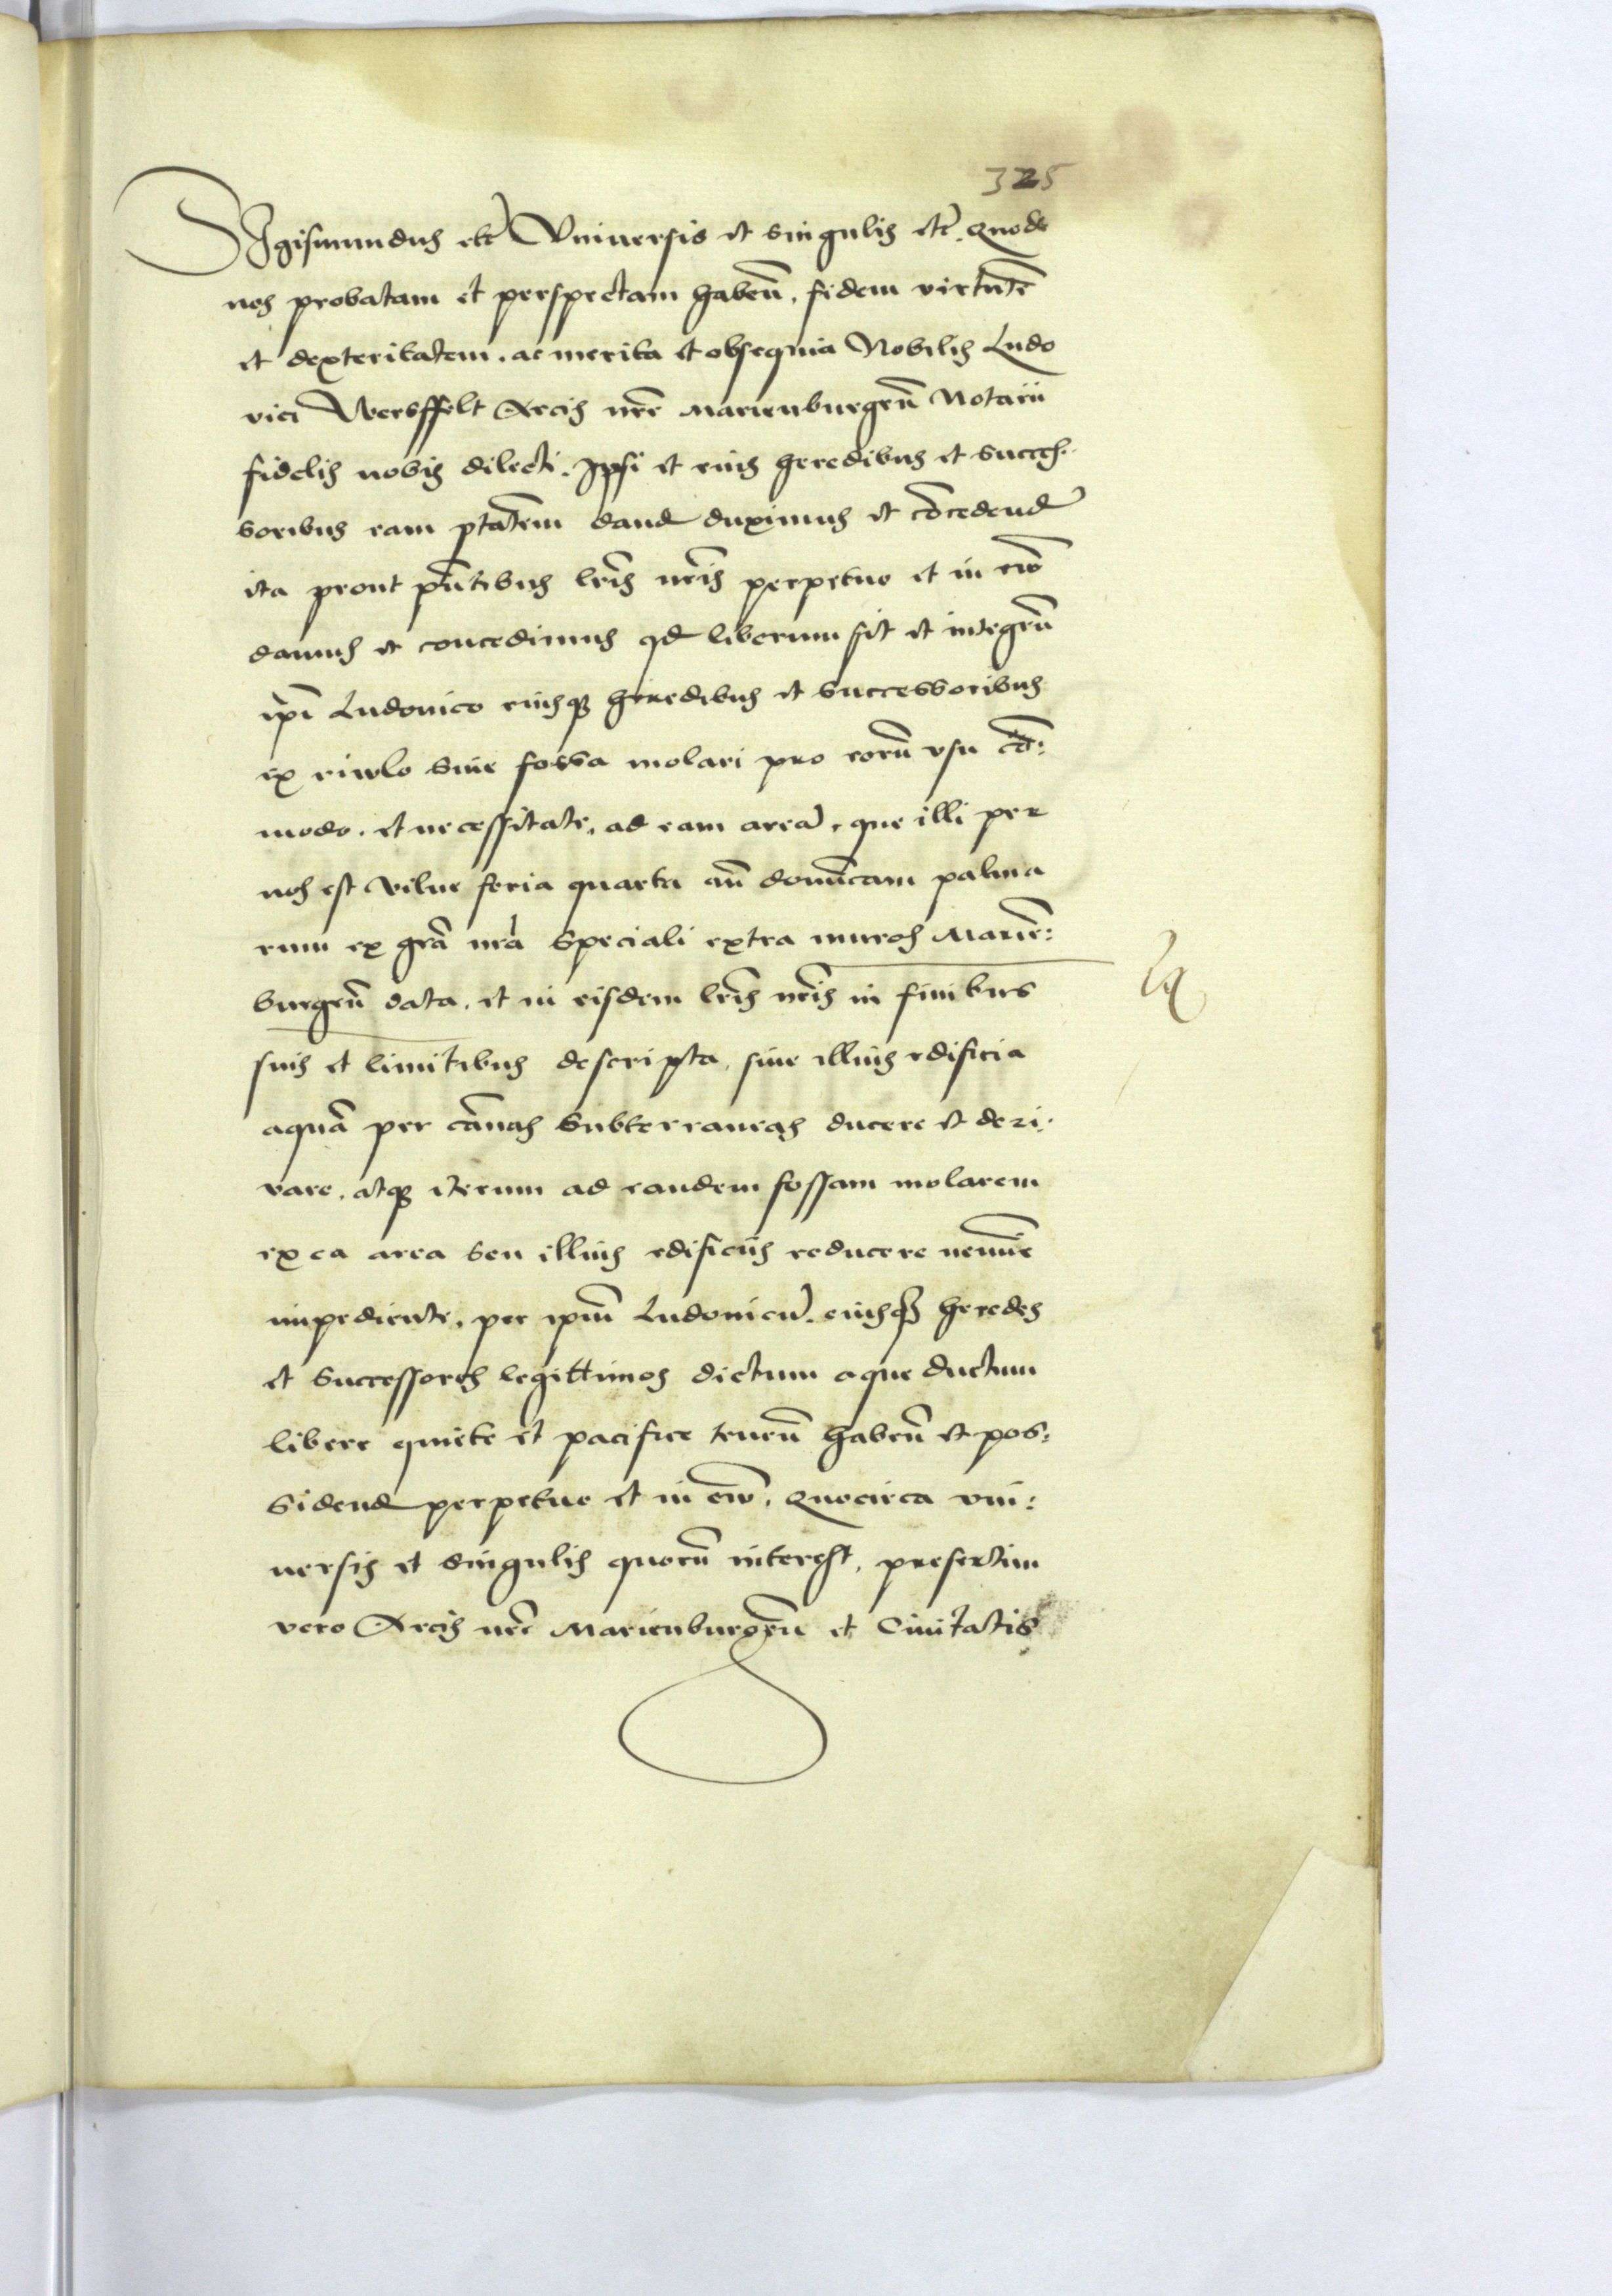 325
Sigismundus etc Vniuersis et singulis etc. quod
nos probatam et perspectam habeñ, fidem virtutē
et dexteritatem. ac merita et obsequia Nobilis Ludo
vici Wersffelt Arcis nr̄e Marienburgeñ Notarii
fidelis nobis dilecti. Ipsi et eius heredibus et succes-
soribus eam ptātem dand duximus et cōcedend
ita prout pñtibus lr̄is nr̄is perpetuo et in ewō
damus et concedimus qd liberum sit et integrū
ip̄i Ludouico eiusqz heredibus et successoribus
ex riwlo siue fossa molari pro eorū vsu cō:
modo. et necessitate, ad eam areā, que illi per
nos est Vilne feria quarta añ domīcam palma
rum ex grā nr̄a speciali extra muros Mariē:
burgeñ data. et in eisdem lr̄is nr̄is in finibus
suis et limitibus descripta, siue illius edificia
aquā per cānas subterraneas ducere et deri.
vare. atqz iterum ad eandem fossam molarem
ex ea area seu illius edificiis reducere nemīe
impediente, per ipm̄ Ludouicū. eiusqz heredes
et successores legittimos dictum aque ductum
libere quiete et pacifice teneñ habeñ et pos:
sidend perpetuo et in ewō. Quocirca vni:
uersis et singulis quorū interest, presertim
vero Arcis nr̄e Marienburgeñ et Ciuitatis